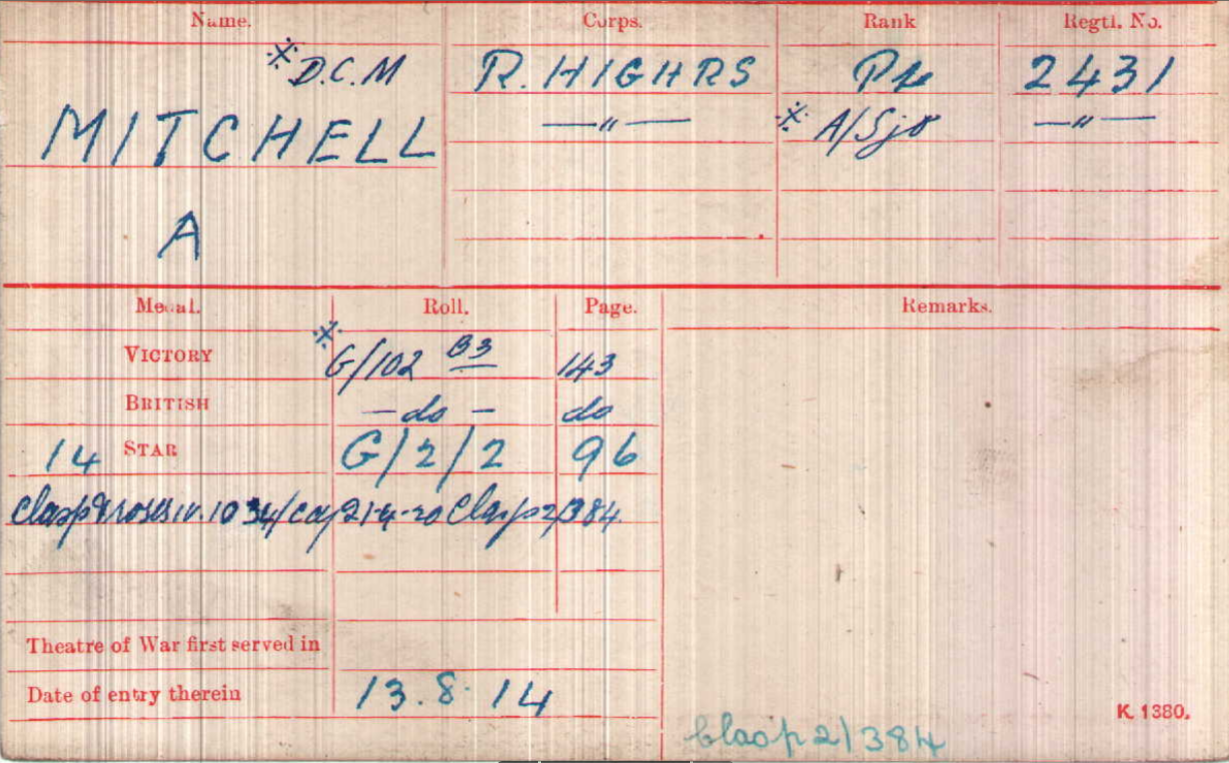 Name. Corps. Rank Regtl. No.
※ D.C.M R. HIGHRS Pte 2431
MITCHELL —"— ※ A/Sjt —"—
A
Medal. Roll. Page. Remarks.
VICTORY ※ G/102 B3 143
BRITISH — do — do
14 STAR G/2/2 96
Clasp & roses iv. 1034/ 21-4-20 Clasp 2/384.
Theatre of War first served in
Date of entry therein 13.8.14
K. 1380.
Clasp 2/384